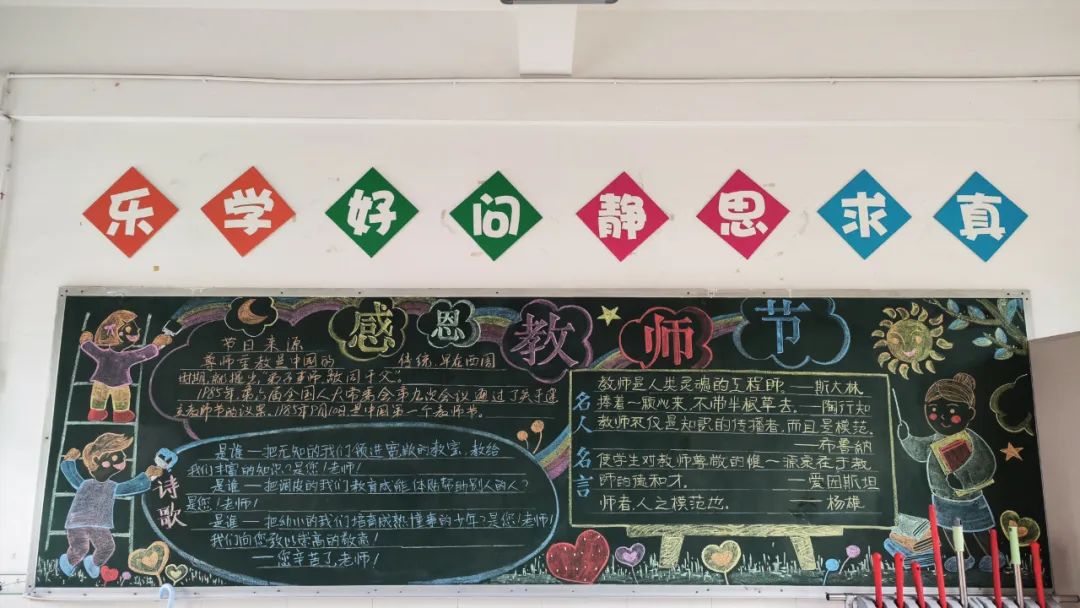 乐学好问静思求真
感恩教师节
节日来源
尊师重教是中国的 传统,早在西周
时期,就提出"弟子事师,敬同于父"。
1985年,第六届全国人大常委会第九次会议通过了关于建
立教师节的议案。1985年9月10日是中国第一个教师节。
诗歌
是谁—把无知的我们领进宽敞的教室,教给
我们丰富的知识?是您!老师!
是谁—把调皮的我们教育成能体贴帮助别人的人?
是您!老师!
是谁—把幼小的我们培育成熟懂事的少年?是您!老师!
我们向您致以崇高的敬意!
——您辛苦了,老师!
名人名言
教师是人类灵魂的工程师——斯大林
捧着一颗心来,不带半根草去.——陶行知
教师不仅是知识的传播者,而且是模范.
——布鲁纳
使学生对教师尊敬的惟一源泉在于教
师的德和才.——爱因斯坦
师者,人之模范也.——杨雄